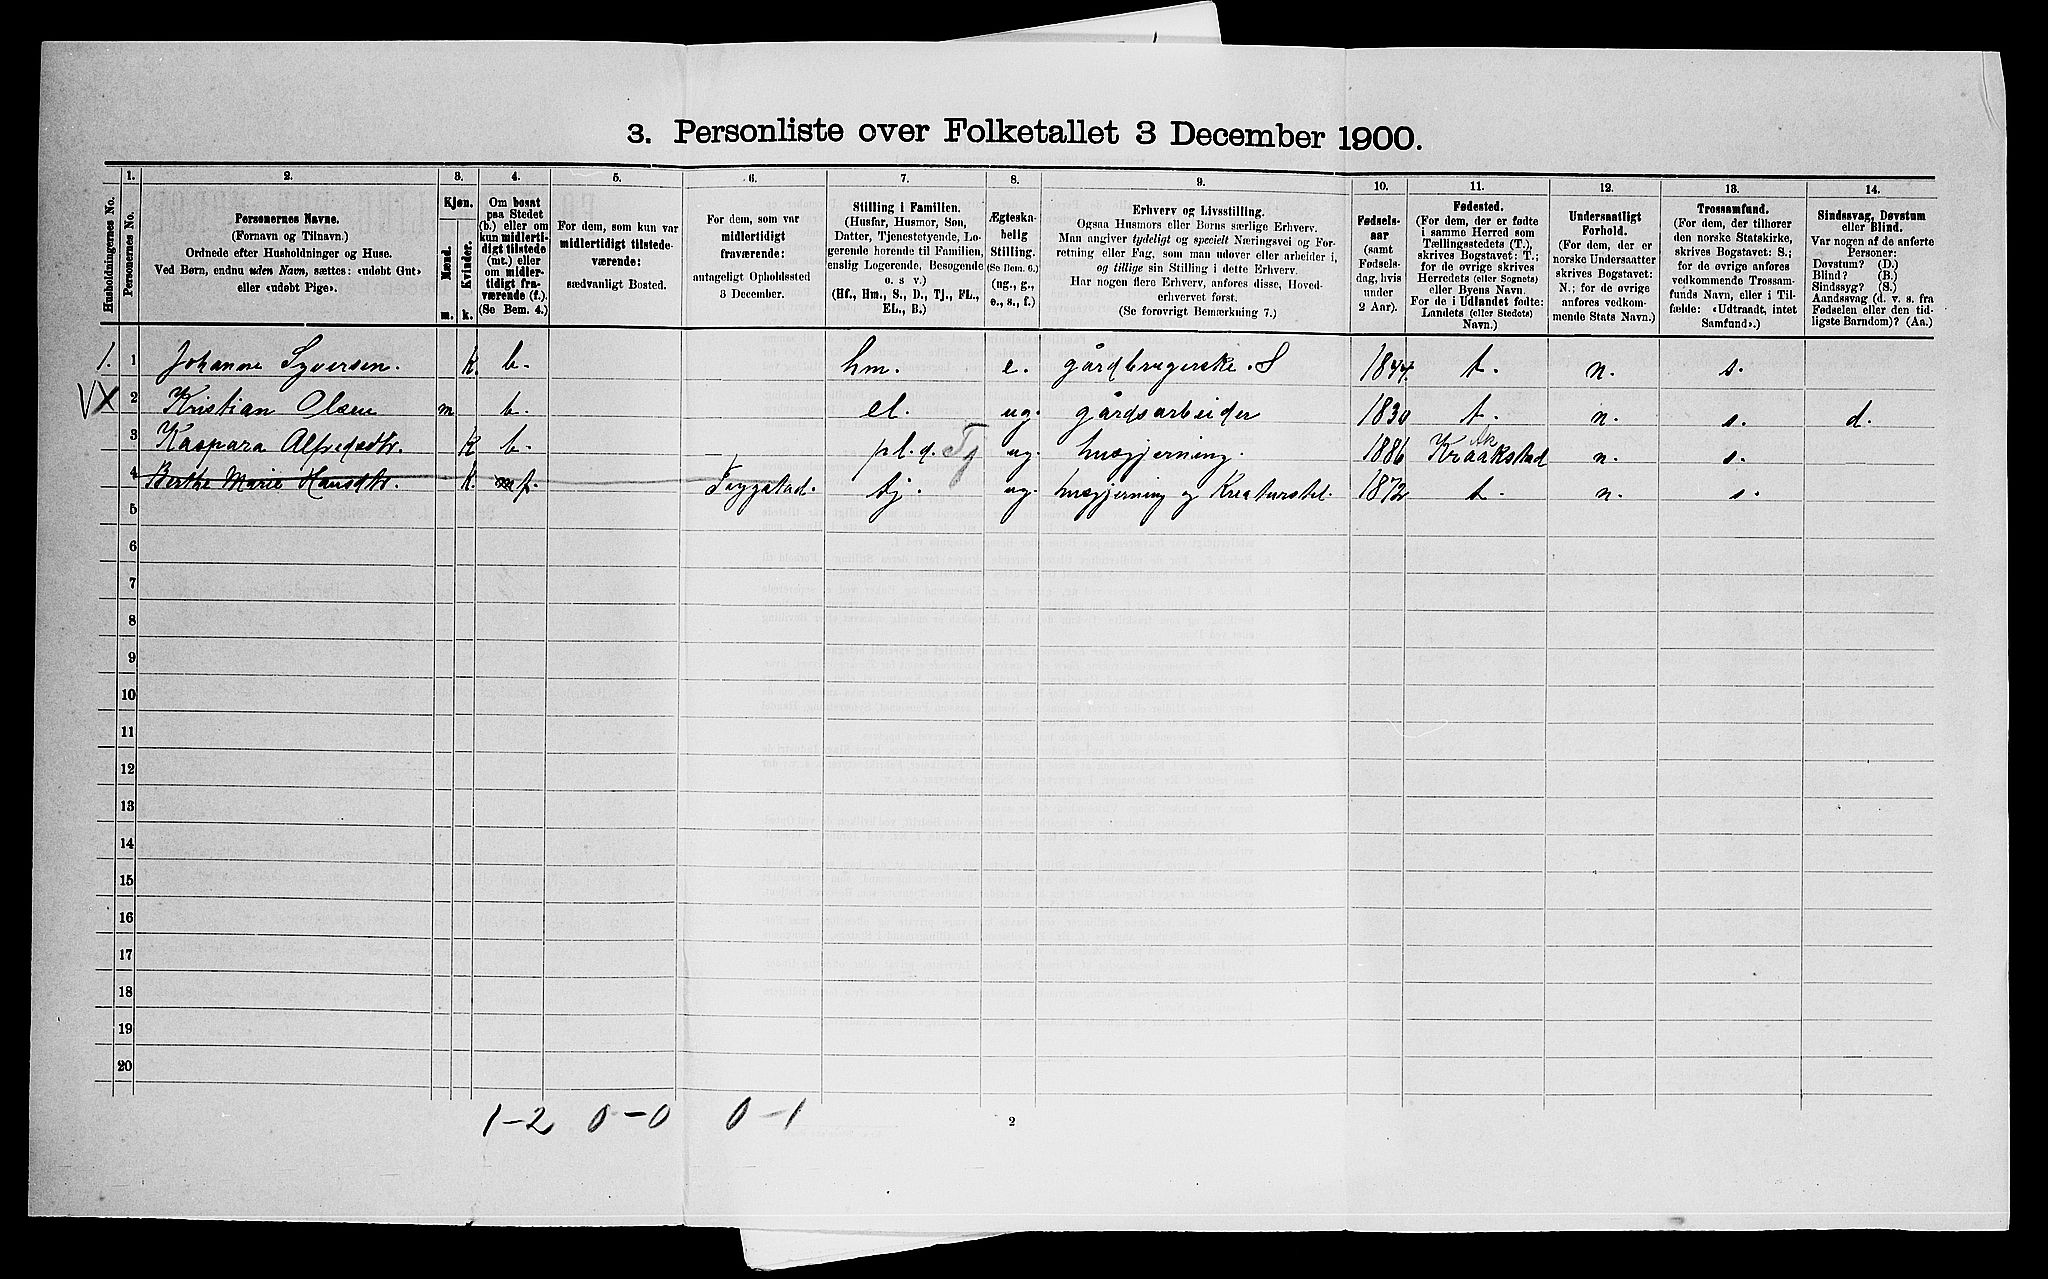 3. Personliste over Folketallet 3 December 1900.
Husholdningernes No.
1.
Personernes No.
2.
Personernes Navne.
(Fornavn og Tilnavn.)
Ordnede efter Husholdninger og Huse.
Ved Børn, endnu uden Navn, sættes: «udøbt Gut»
eller «udøbt Pige».
3.
Kjøn.
Mænd.
Kvinder.
m. k.
4.
Om bosat
paa Stedet
(b.) eller om
kun midlerti-
digt tilstede
(mt.) eller
om midler-
tidigt fra-
værende (f.).
(Se Bem. 4.)
5.
For dem, som kun var
midlertidigt tilstede-
værende:
sædvanligt Bosted.
6.
For dem, som var
midlertidigt
fraværende:
antageligt Opholdssted
3 December.
7.
Stilling i Familien.
(Husfar, Husmor, Søn,
Datter, Tjenestetyende, Lo-
gerende hørende til Familien,
enslig Logerende, Besøgende
o. s. v.)
(Hf., Hm., S., D., Tj., FL.,
EL., B.)
8.
Ægteska-
belig
Stilling.
(Se Bem. 6.)
(ug., g.,
e., s., f.)
9.
Erhverv og Livsstilling.
Ogsaa Husmors eller Børns særlige Erhverv.
Man angiver tydeligt og specielt Næringsvei og For-
retning eller Fag, som man udøver eller arbeider i,
og tillige sin Stilling i dette Erhverv.
Har nogen flere Erhverv, anføres disse, Hoved-
erhvervet først.
(Se forøvrigt Bemærkning 7.)
10.
Fødsels-
aar
(samt
Fødsels-
dag, hvis
under
2 Aar).
11.
Fødested.
(For dem, der er fødte
i samme Herred som
Tællingsstedets (T.),
skrives Bogstavet: T.;
for de øvrige skrives
Herredets (eller Sognets)
eller Byens Navn.
For de i Udlandet fødte:
Landets (eller Stedets)
Navn.)
12.
Undersaatligt
Forhold.
(For dem, der er
norske Undersaatter
skrives Bogstavet:
N.; for de øvrige
anføres vedkom-
mende Stats Navn.)
13.
Trossamfund.
(For dem, der tilhører
den norske Statskirke,
skrives Bogstavet: S.;
for de øvrige anføres
vedkommende Trossam-
funds Navn, eller i Til-
fælde: «Udtraadt, intet
Samfund».)
14.
Sindssvag, Døvstum
eller Blind.
Var nogen af de anførte
Personer:
Døvstum? (D.)
Blind? (B.)
Sindssyg? (S.)
Aandssvag (d. v. s. fra
Fødselen eller den tid-
ligste Barndom)? (Aa.)
1. 1 Johanne Syversen. k. b. hm. e. gårdbrugerske. S 1844. t. n. s.
VX 2 Kristian Olsen m b. el. ug. gårdsarbeider 1830 t. n. s. d.
3 Kaspara Alfredsdtr. k b. pl.d. Tj ug. husgjerning. 1886 Kraakstad Ak n. s.
4 Berthe Marie Hansdtr. k. mf. tj. ug. husgjerning og Kreaturstel. 1872 t. n. s.
5
6
7
8
9
10
11
12
13
14
15
16
17
18
19
20
1-2 0-0 0-1
2